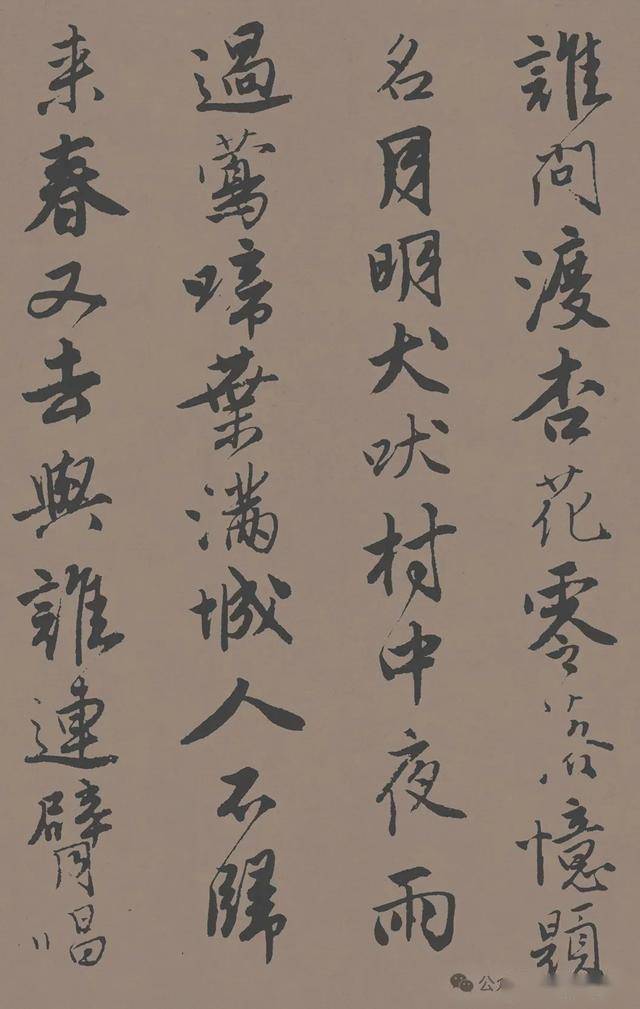 誰問渡杏花零落憶題
名月明犬吠村中夜雨
過鶯啼葉滿城人不歸
来春又去與誰連臂唱
公